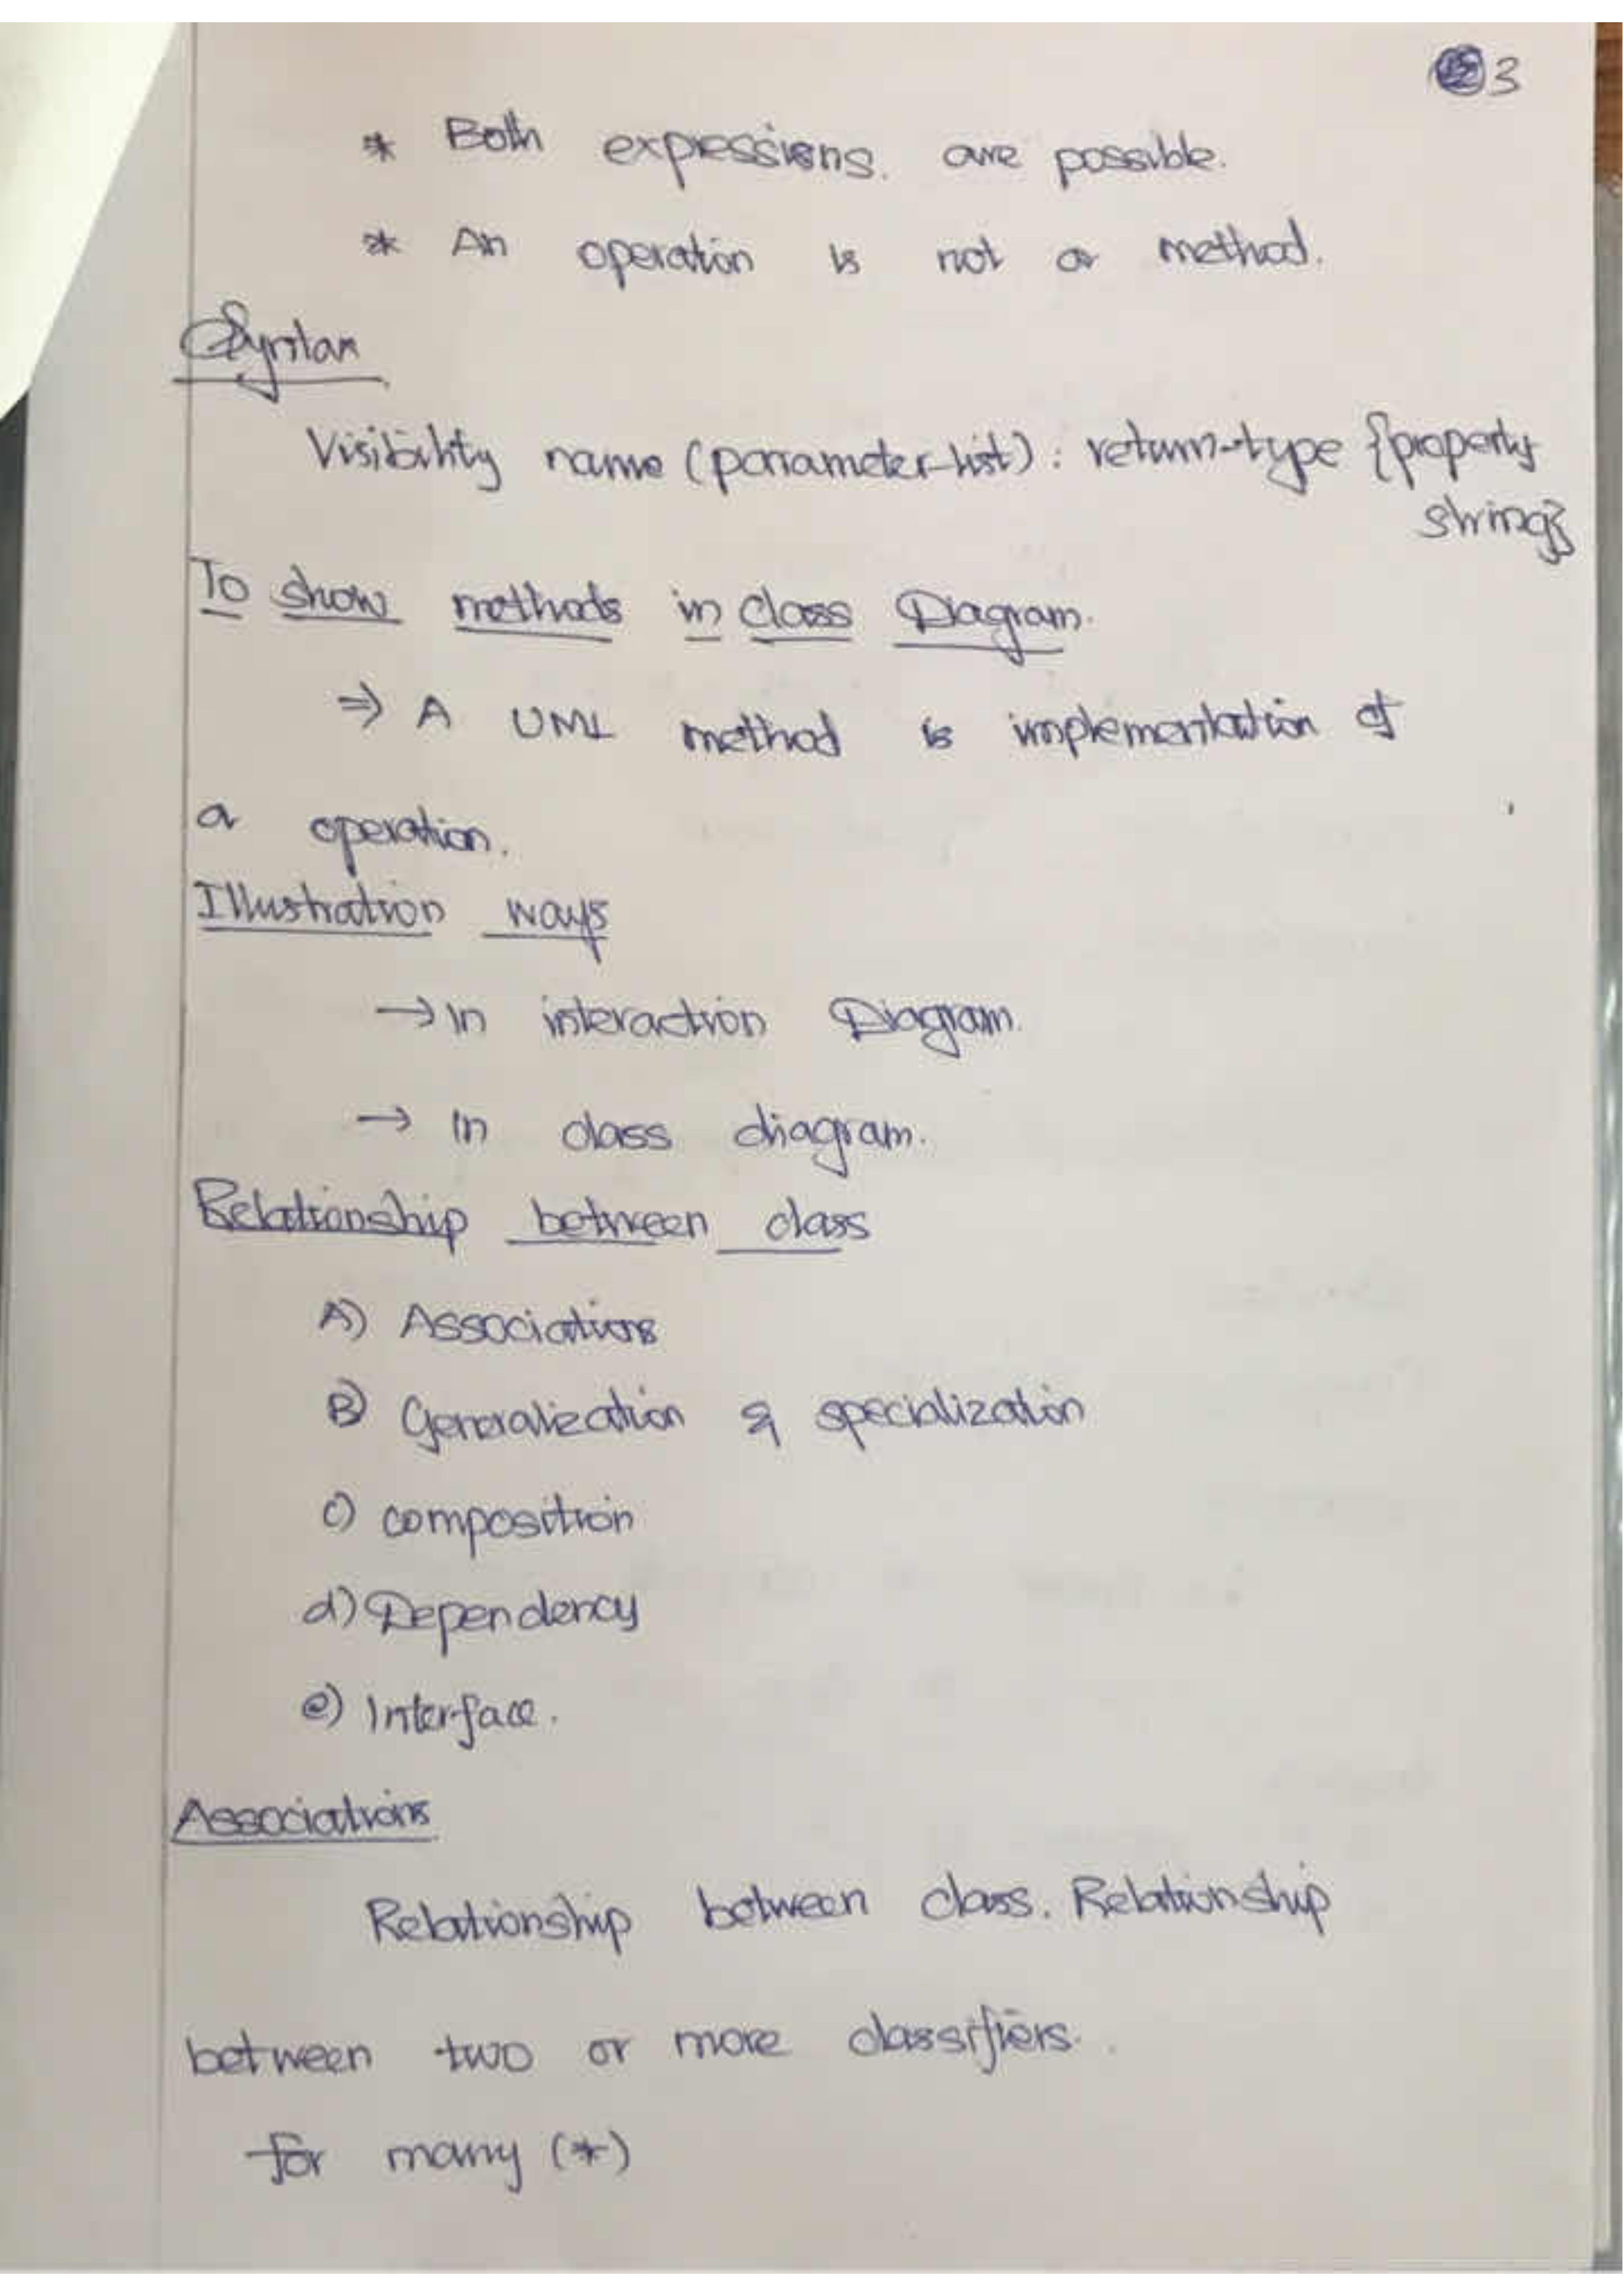 3
* Both expressions. are possible.
* An operation is not a method.
Syntax
Visibility name (parameter-list) : return-type {property
string}
To show methods in class Diagram.
⇒ A UML method is implementation of
a operation.
Illustration ways
→ In interaction Diagram.
→ In class diagram.
Relationship between class
A) Associations
B) Generalization & specialization
c) composition
d) Dependency
e) Interface.
Associations
Relationship between class. Relationship
between two or more classifiers.
for many (*)